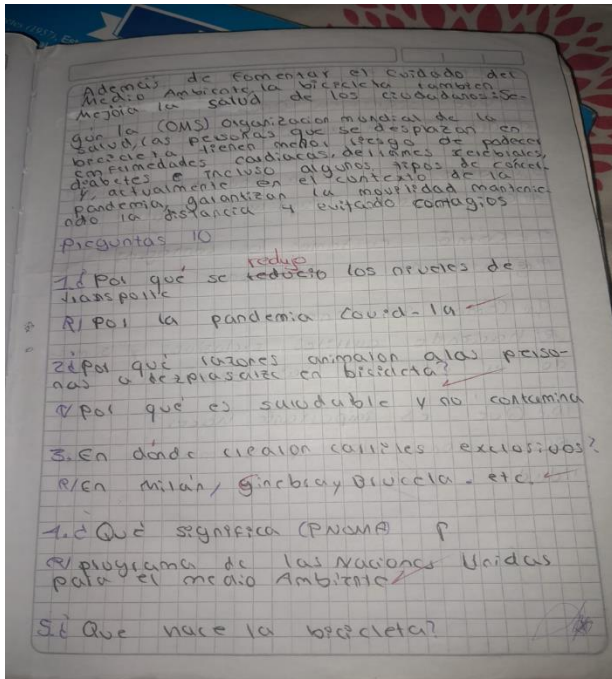 Además de fomentar el cuidado del
Medio Ambiente, la bicicleta tambien
Mejora la salud de los ciudadanos: Se-
gún la (OMS) organización mundial de la
salud, las personas que se desplazan en
becicleta, tienen menor riesgo de padecer
enfumedades cardiacas, derrames
diabetes e incluso algunos tipos de cancer
y, actualmente en el contexto de la
pandemia, garantizan la movilidad mantenie-
ndo la distancia y evitando contagios
Preguntas 10
redujo
1¿ Por qué se reducio los niveles de
transporte
R/ Por la pandemia covid-19
2¿por qué razones animaron alas perso-
nas a dezplasarze en bicicleta?
R/ Por qué es saludable y no contamina
3. En dónde crearon carriles exclosivos?
R/ En milán, Ginebra y Bruccla. etc.
4.¿ Qué significa (PNUMA)
R/ programa de las Naciones Unidas
para el medio Ambiente
5.¿ Que hace la bicicleta?